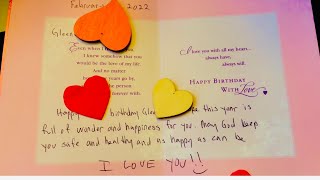 February 2022
Glee
Even when I
I knew somehow that you
would be the love of my life.
And no matter
years go by,
the person
forever with.
I love you with all my heart...
always have,
always will.
HAPPY BIRTHDAY
WITH Love
Happy birthday Glee this year is
full of wonder and happiness for you. May God keep
you safe and healthy and as happy as can be
I LOVE YOU!!